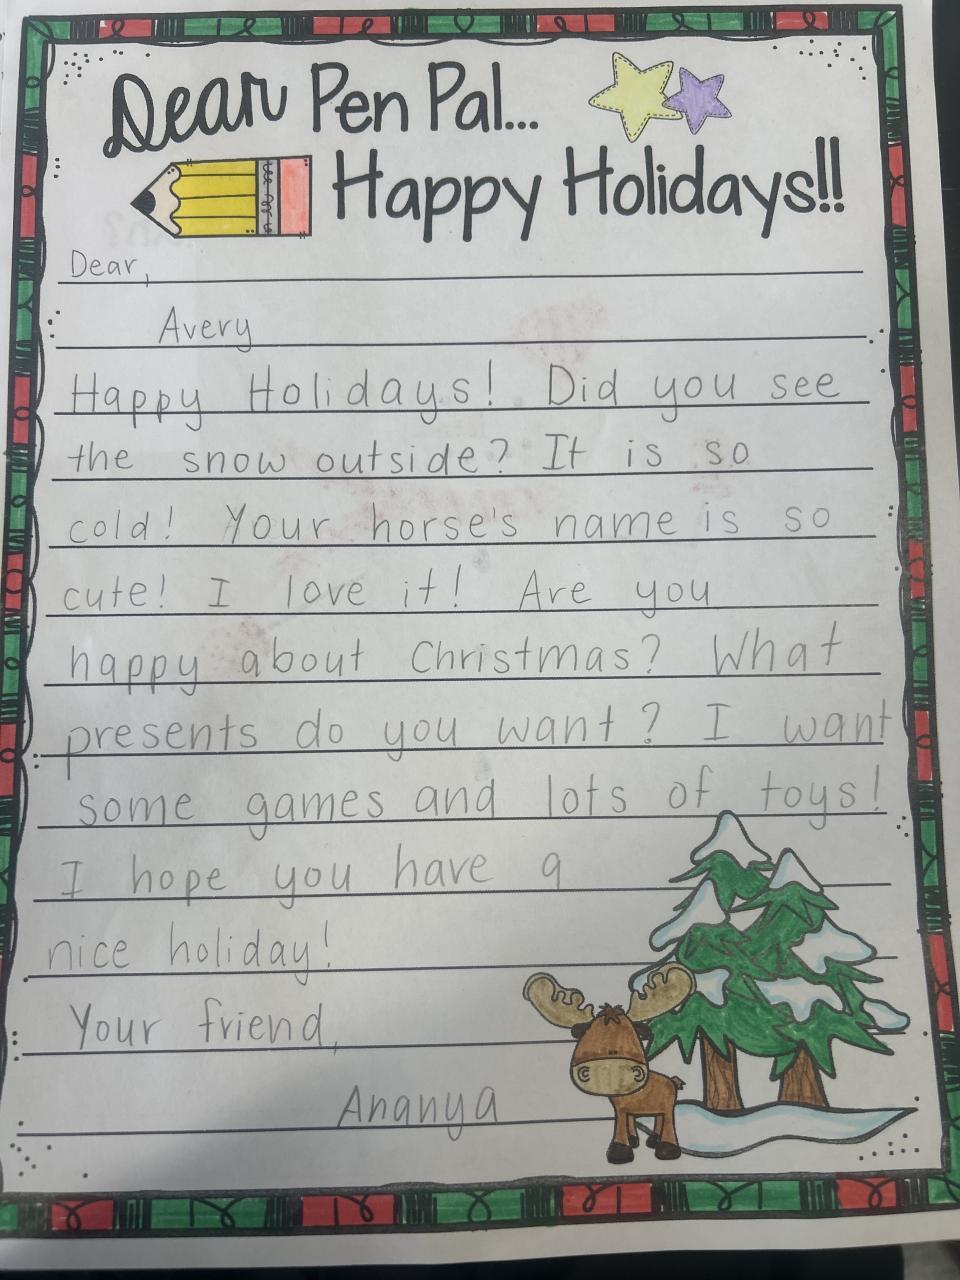 Dear Pen Pal...
Happy Holidays!!
Dear,
Avery
Happy Holidays! Did you see
the snow outside? It is so
cold! Your horse's name is so
cute! I love it! Are you
happy about Christmas? What
presents do you want? I want
some games and lots of toys!
I hope you have a
nice holiday!
Your friend,
Ananya